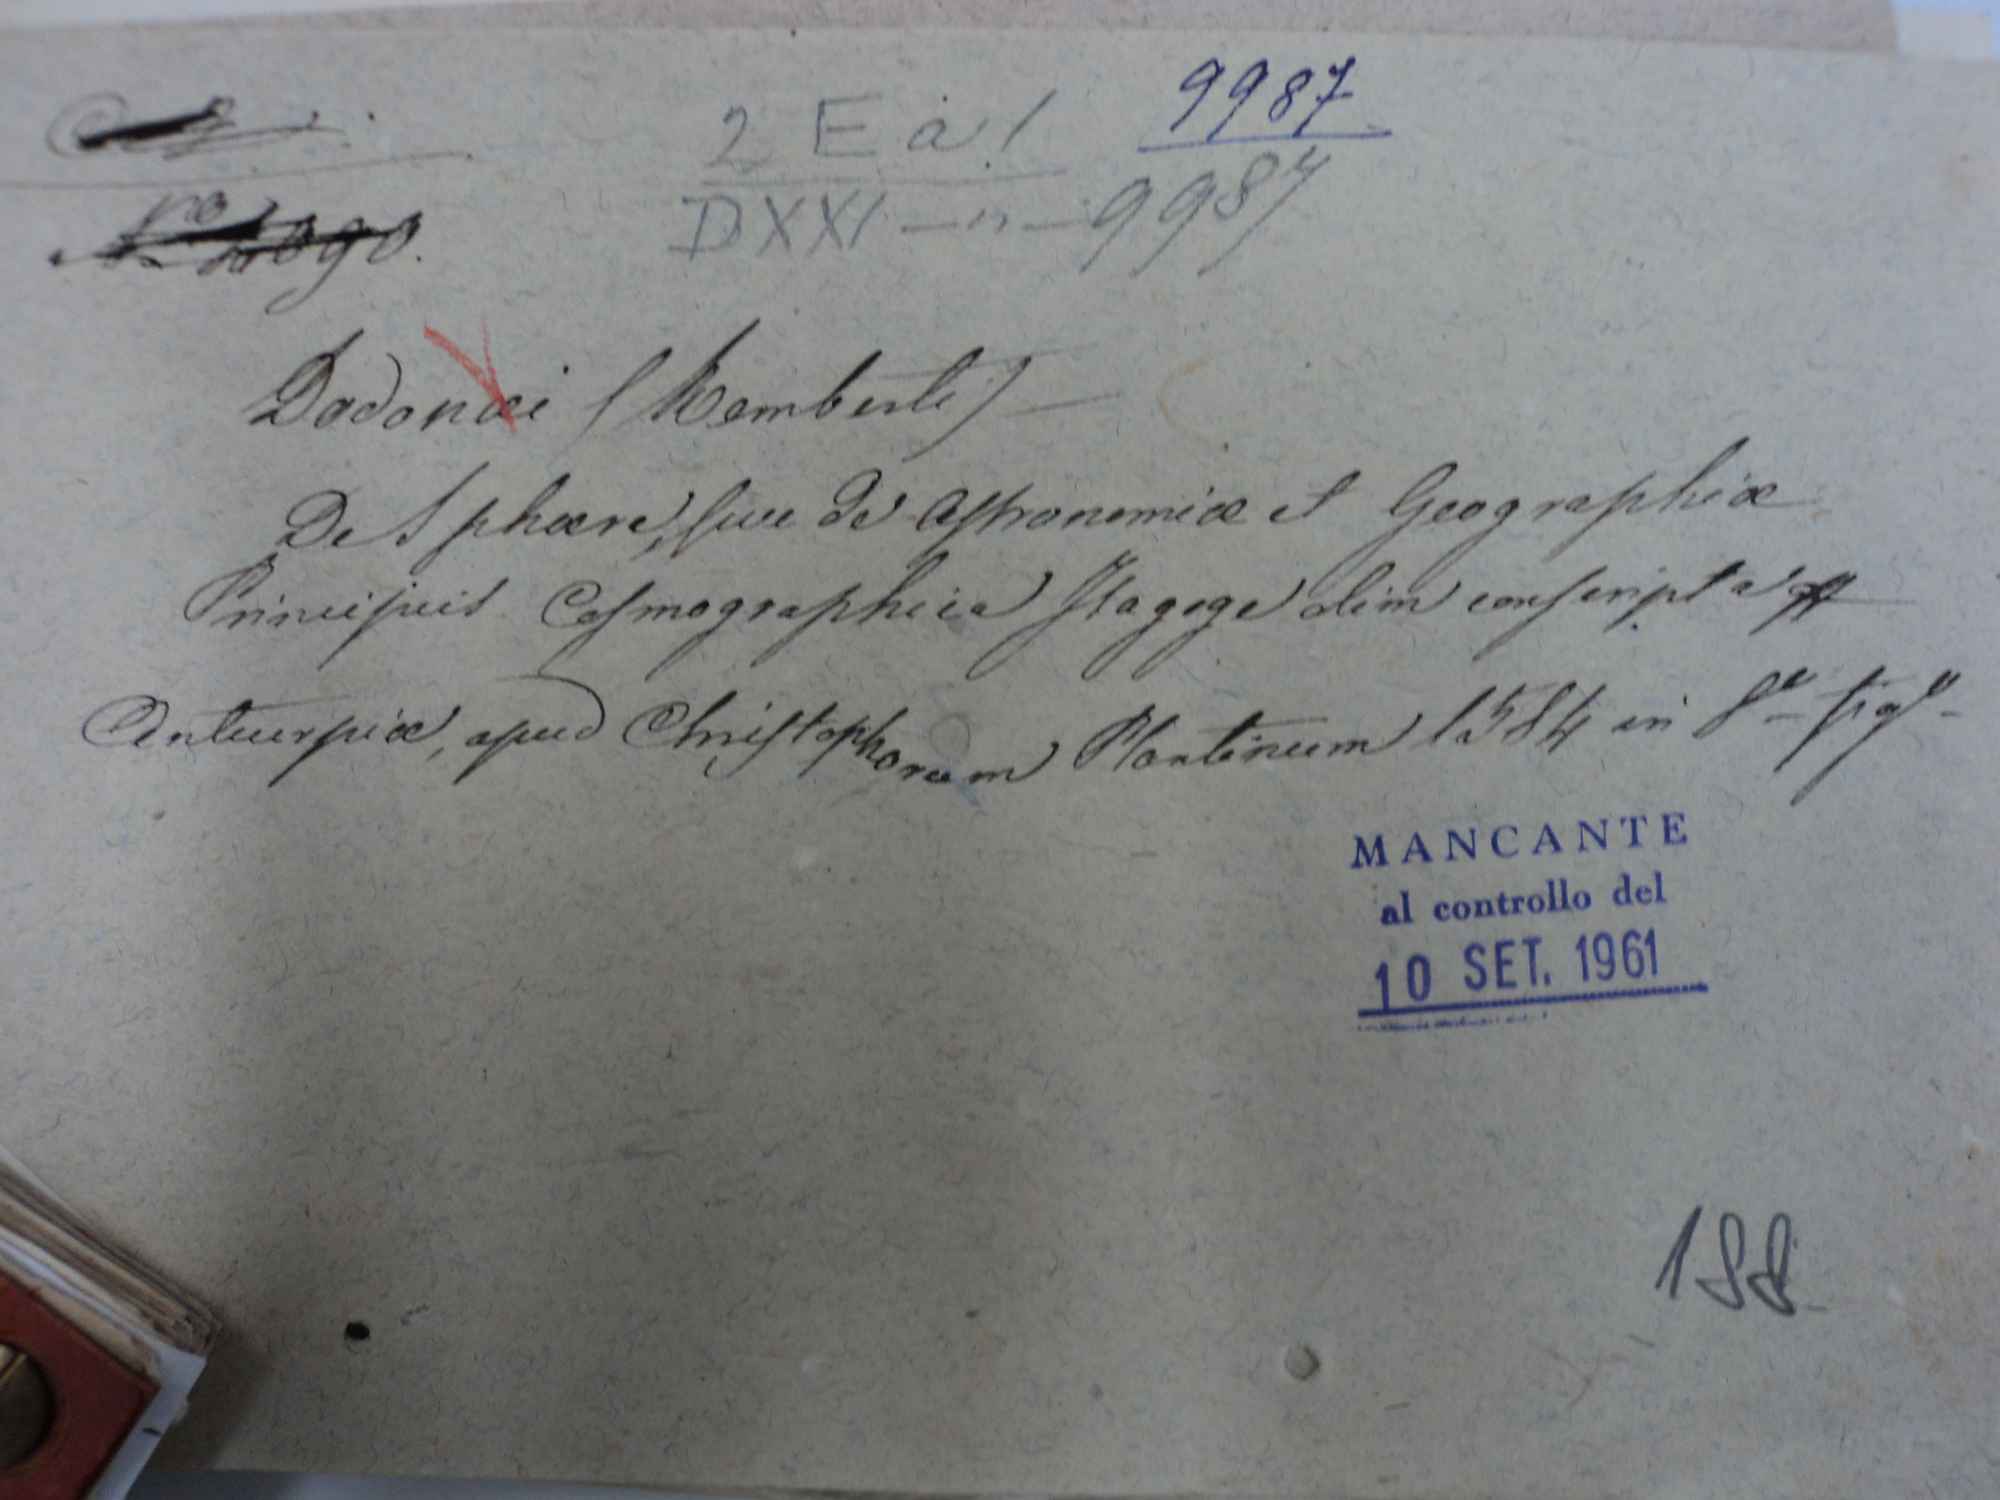 9987
2 E a 1
DXXI — n — 9987
Dodonæi (Remberti) —
De Sphæra, sive de Astronomiæ et Geographiæ
Principiis Cosmographica Isagoge olim conscripta
Antuerpiæ, apud Christophorum Plantinum 1584 in 8º figº
MANCANTE
al controllo del
10 SET. 1961
188